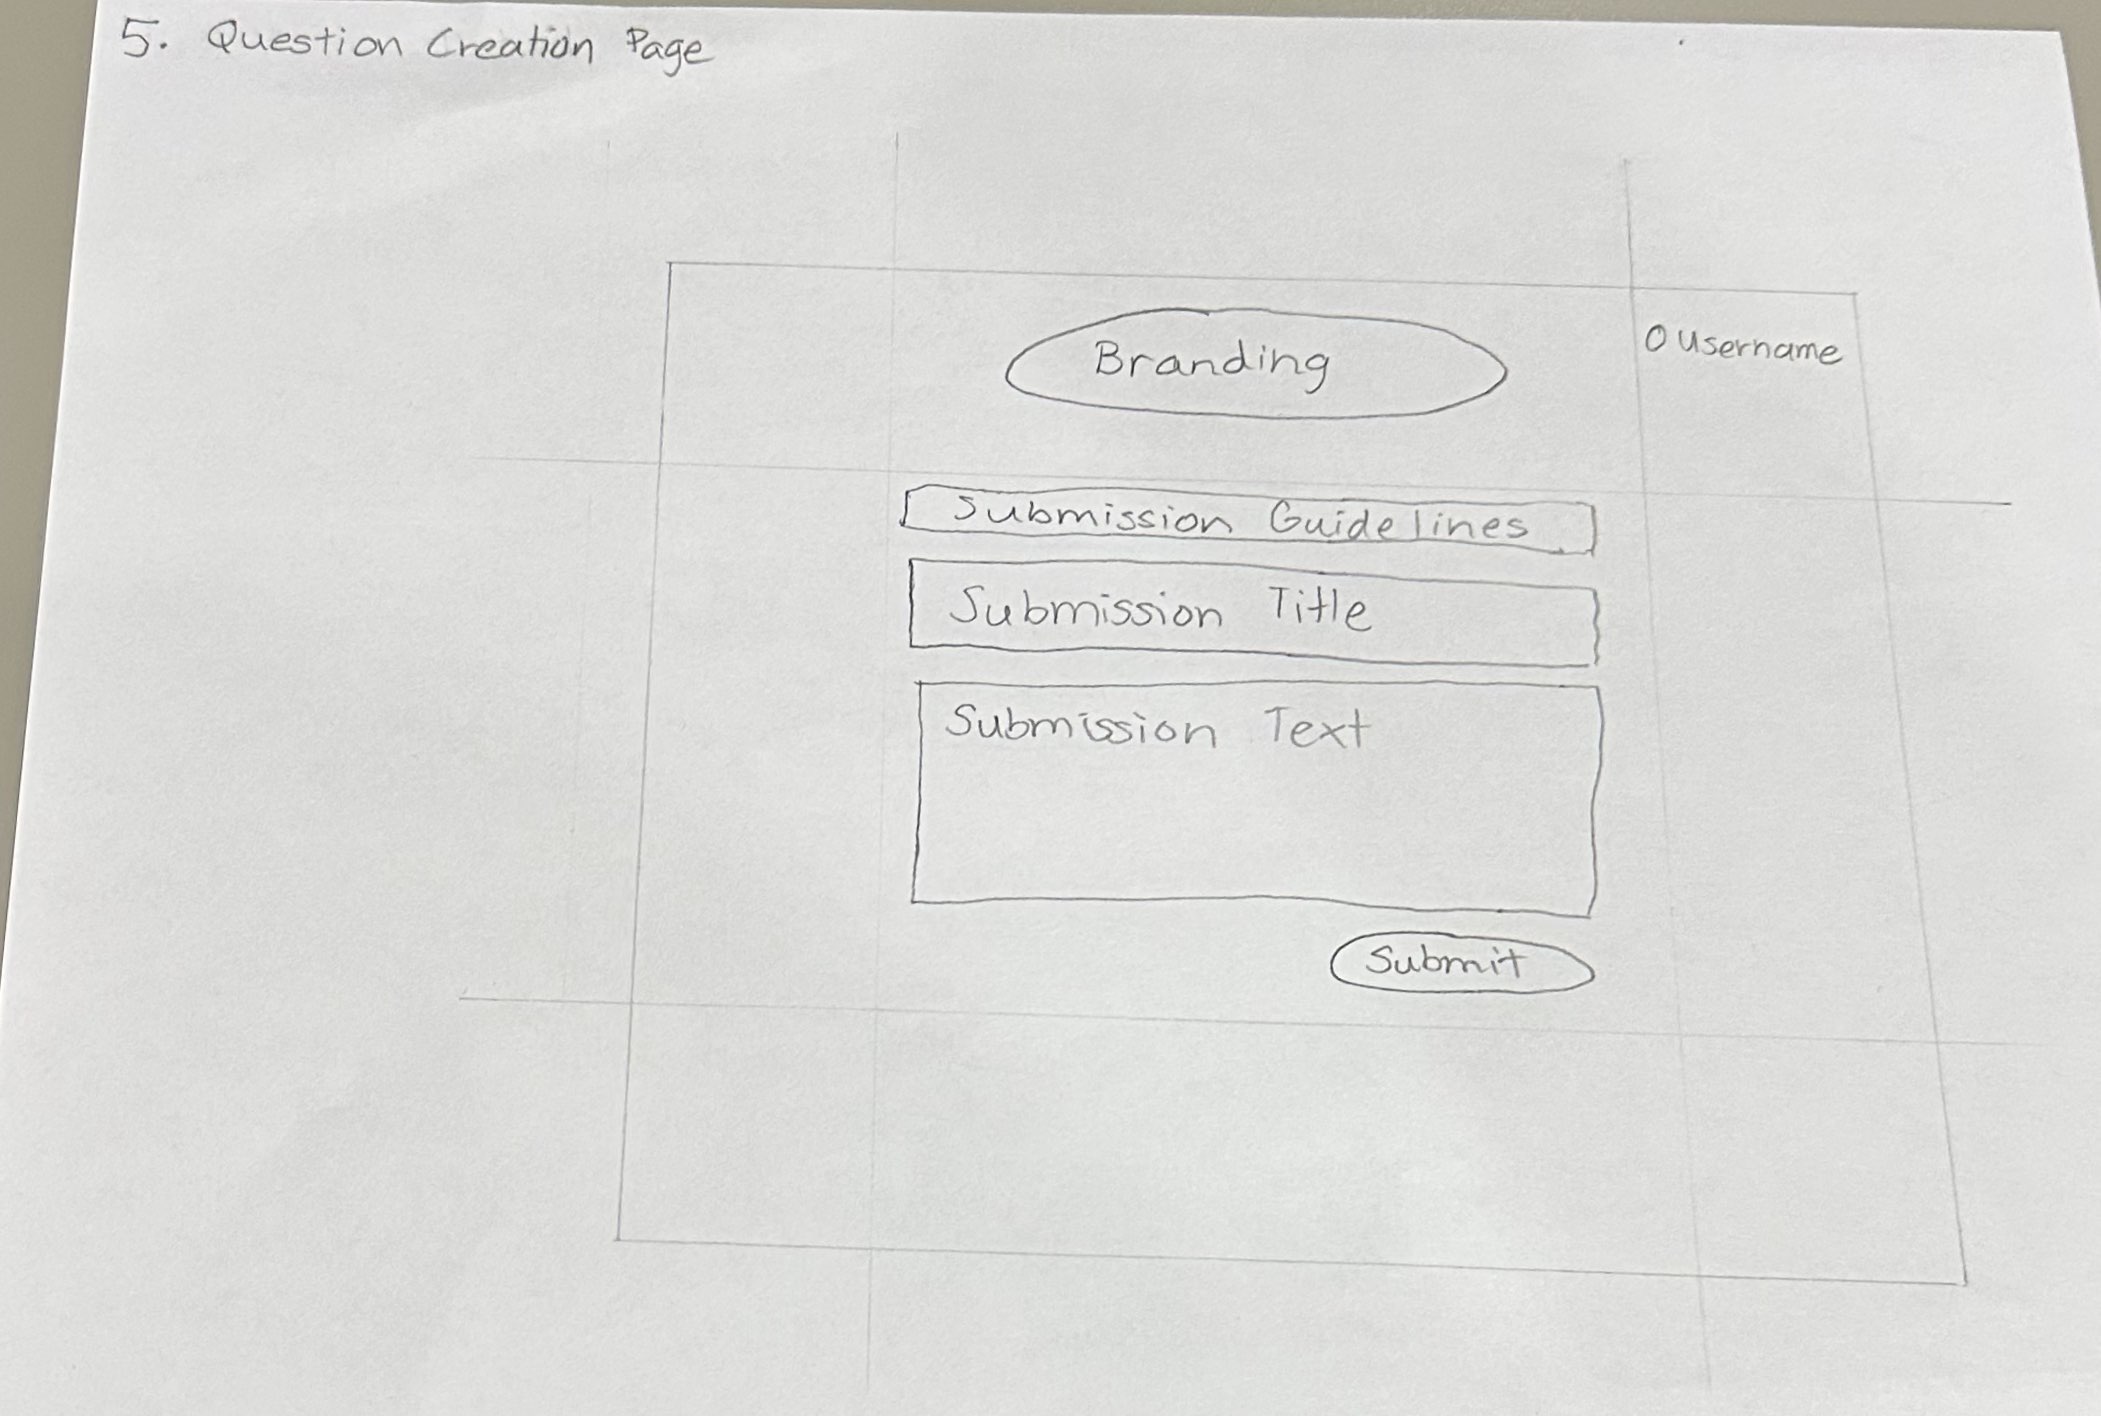 5. Question Creation Page
Branding
Username
Submission Guidelines
Submission Title
Submission Text
Submit